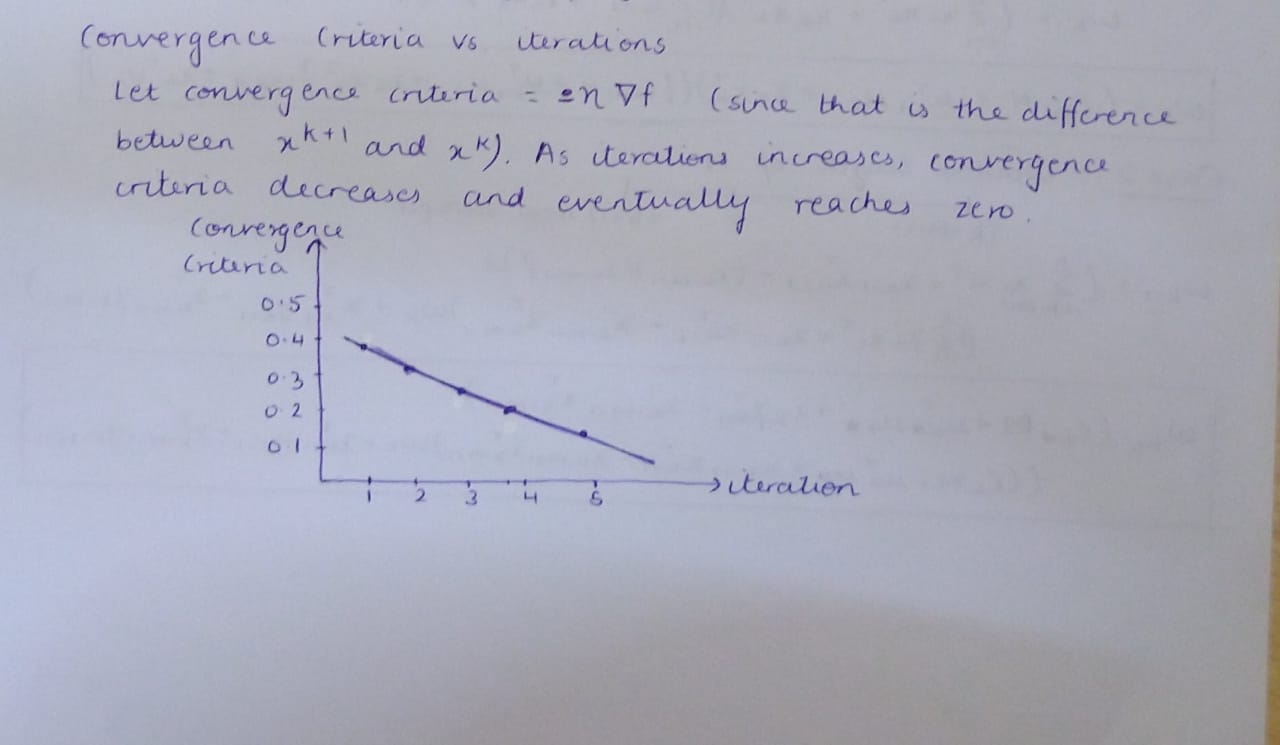 Convergence Criteria vs iterations
Let convergence criteria = η ∇f (since that is the difference
between x^{k+1} and x^k). As iterations increases, convergence
criteria decreases and eventually reaches zero.
Convergence
Criteria
0.5
0.4
0.3
0.2
0.1
1 2 3 4 5
iteration